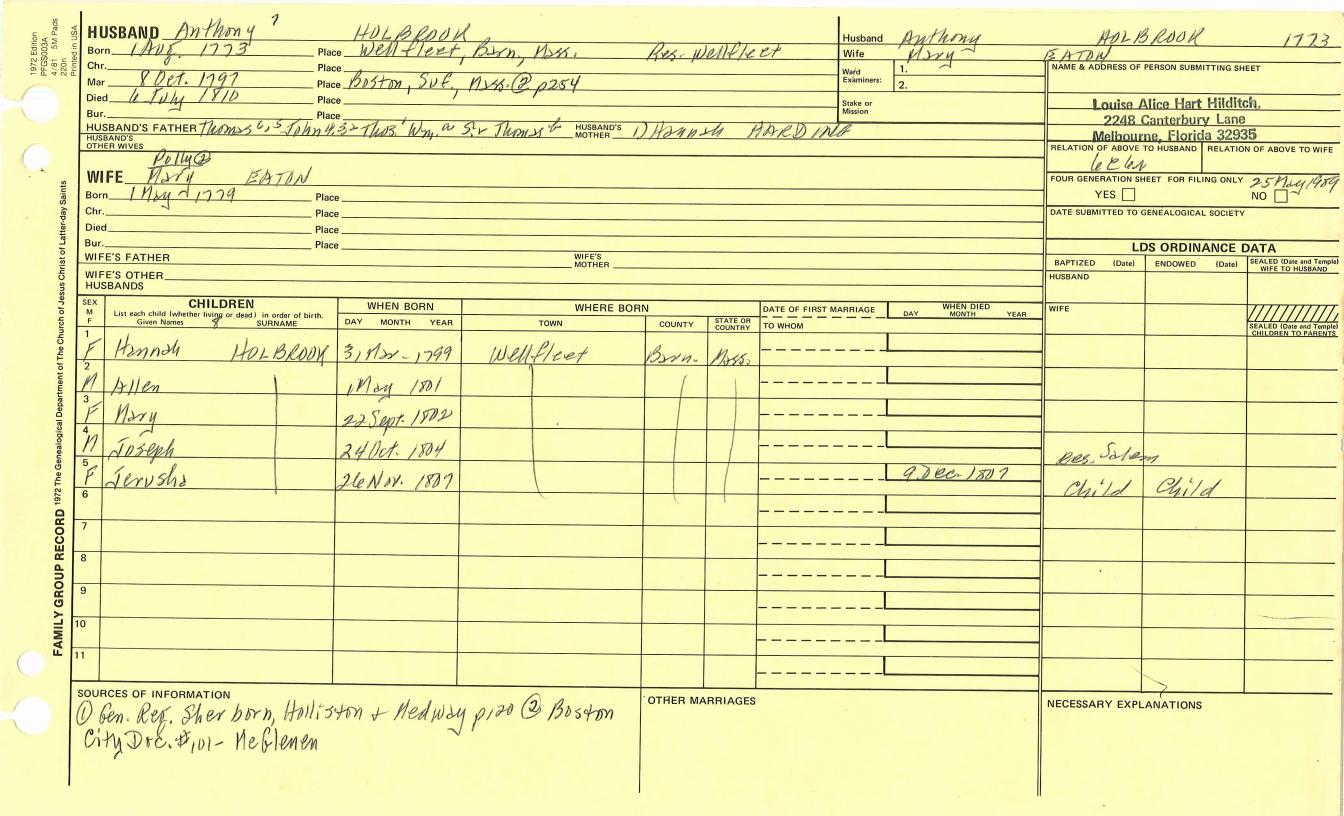 1972 Edition
PFGS003A
4/81 5M Pads
220n
Printed in USA
FAMILY GROUP RECORD 1972 The Genealogical Department of The Church of Jesus Christ of Latter-day Saints
HUSBAND Anthony 7 HOLBROOK
Born 1 Aug. 1773 Place Wellfleet, Barn, Mass. Res. Wellfleet
Chr. Place
Mar 8 Oct. 1797 Place Boston, Suf, Mass. ② p254
Died 6 July 1810 Place
Bur. Place
HUSBAND'S FATHER Thomas 6, 5 John 4, 3, 2 Thos' Wm. a Sir Thomas b HUSBAND'S MOTHER 1) Hannah HARDING
HUSBAND'S OTHER WIVES
Polly ②
WIFE Mary EATON
Born 1 May 1779 Place
Chr. Place
Died Place
Bur. Place
WIFE'S FATHER WIFE'S MOTHER
WIFE'S OTHER HUSBANDS
Husband Anthony HOLBROOK 1773
Wife Mary EATON
Ward Examiners: 1.
2.
Stake or Mission
NAME & ADDRESS OF PERSON SUBMITTING SHEET
Louise Alice Hart Hilditch.
2248 Canterbury Lane
Melbourne, Florida 32935
RELATION OF ABOVE TO HUSBAND RELATION OF ABOVE TO WIFE
FOUR GENERATION SHEET FOR FILING ONLY 25 May 1989
YES NO
DATE SUBMITTED TO GENEALOGICAL SOCIETY
LDS ORDINANCE DATA
BAPTIZED (Date) ENDOWED (Date) SEALED (Date and Temple) WIFE TO HUSBAND
HUSBAND
WIFE
SEALED (Date and Temple) CHILDREN TO PARENTS
SEX M F CHILDREN WHEN BORN WHERE BORN DATE OF FIRST MARRIAGE WHEN DIED
List each child (whether living or dead) in order of birth.
Given Names 8 SURNAME DAY MONTH YEAR TOWN COUNTY STATE OR COUNTRY TO WHOM DAY MONTH YEAR
1 F Hannah HOLBROOK 31 Mar - 1799 Wellfleet Barn. Mass.
2 M Allen 1 May 1801
3 F Mary 22 Sept. 1802
4 M Joseph 24 Oct. 1804 Res. Salem
5 F Jerusha 26 Nov. 1807 9 Dec. 1807 Child Child
6
7
8
9
10
11
SOURCES OF INFORMATION
① Gen. Reg. Sherborn, Holliston + Medway p120 ② Boston
City Doc. #101 - McGlenen
OTHER MARRIAGES
NECESSARY EXPLANATIONS